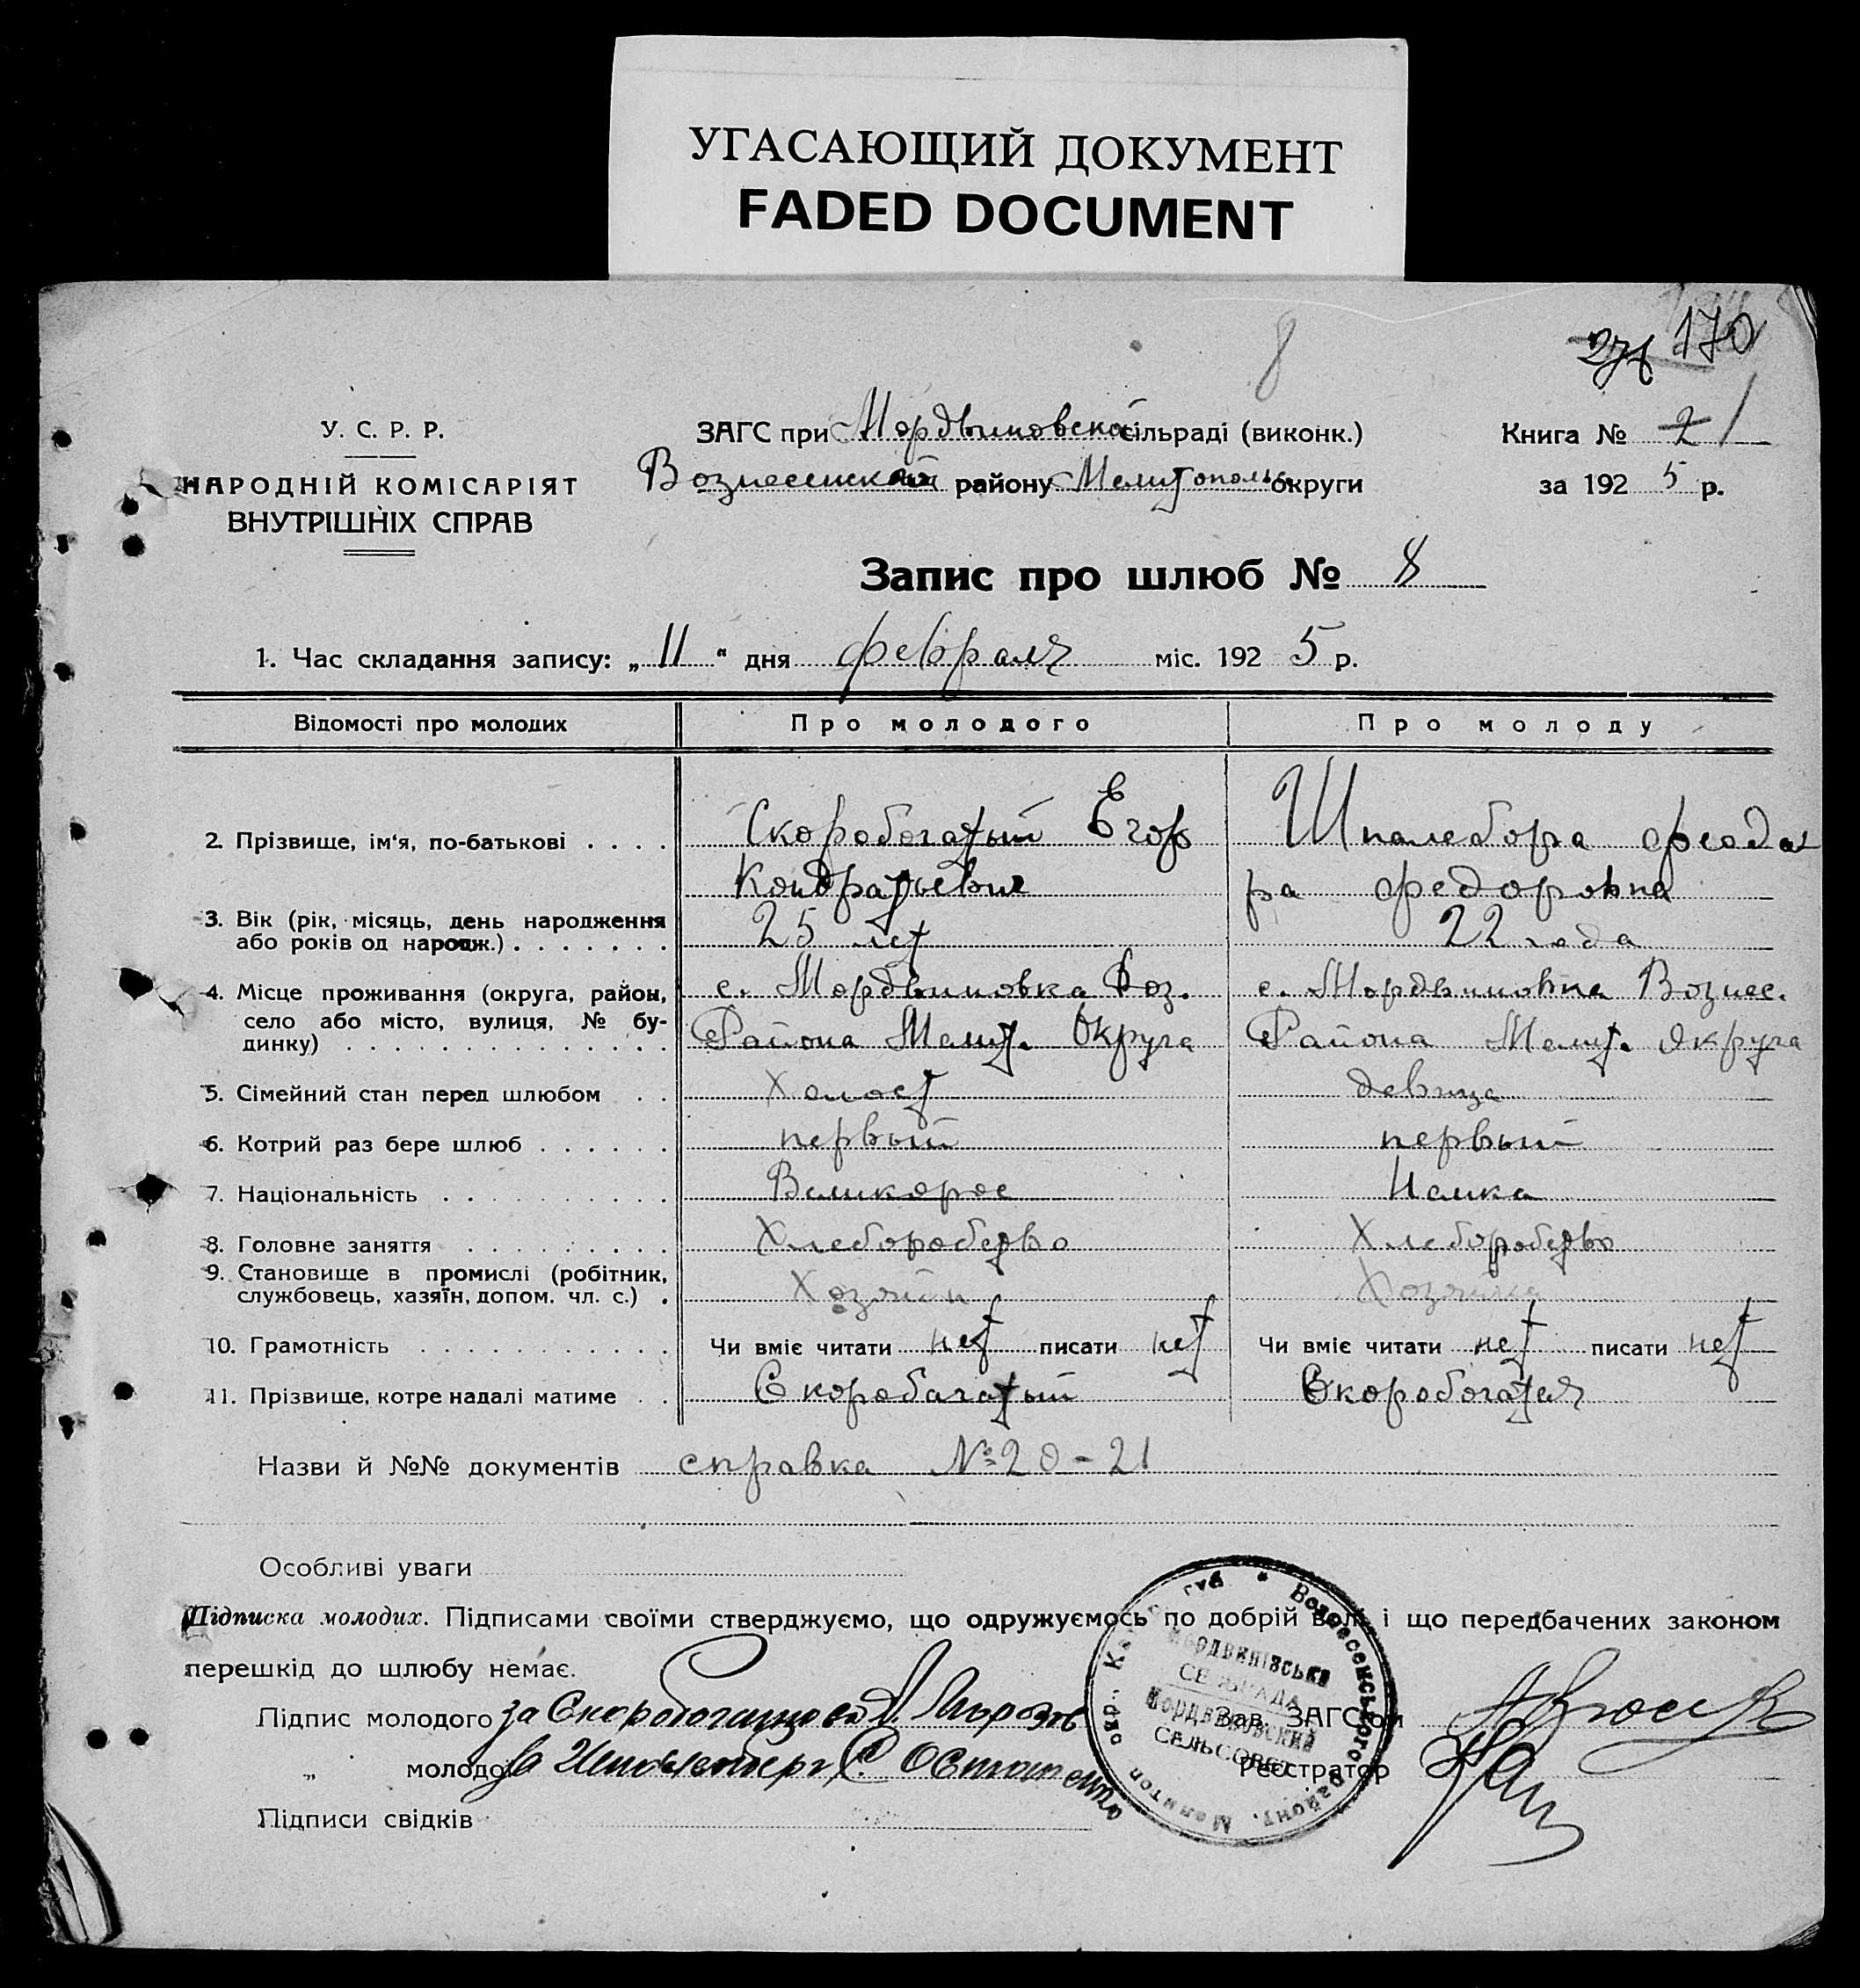 УГАСАЮЩИЙ ДОКУМЕНТ
FADED DOCUMENT
8
170
У. С. Р. Р.
НАРОДНІЙ КОМІСАРІЯТ
ВНУТРІШНІХ СПРАВ
ЗАГС при Мордвиновской сільраді (виконк.)
Вознесенской району Мелитополь. округи
Книга № 2 1
за 192 5 р.
Запис про шлюб № 8
1. Час складання запису: „ 11 “ дня февраля міс. 192 5 р.
Відомості про молодих Про молодого Про молоду
2. Прізвище, ім‘я, по-батькові . . . . Скоробогатый Егор Шпалебора Феодо
Кондратьевич ра Федоровна
3. Вік (рік, місяць, день народження
або років од народж.) . . . . . . . 25 лет 22 года
4. Місце проживання (округа, район, с. Мордвиновка Воз. с. Мордвиновка Вознес.
село або місто, вулиця, № бу-
динку) . . . . . . . . . . . . . . Района Мелит. Округа Района Мелит. Округа
5. Сімейний стан перед шлюбом . . Холост девица
6. Котрий раз бере шлюб . . . . . . первый первый
7. Національність . . . . . . . . . . Великорос Немка
8. Головне заняття . . . . . . . . . Хлеборобство Хлеборобство
9. Становище в промислі (робітник,
службовець, хазяїн, допом. чл. с.) . Хозяин Хозяйка
10. Грамотність . . . . . . . . . . . Чи вміє читати нет писати нет Чи вміє читати нет писати нет
11. Прізвище, котре надалі матиме . . Скоробагатый Скоробогатая
Назви й №№ документів справка № 20 - 21
Особливі уваги
Підписка молодих. Підписами своїми стверджуємо, що одружуємось по добрій волі і що передбачених законом
перешкід до шлюбу немає.
Підпис молодого за Скоробогатова Морозов
Зав. ЗАГС'ом
„ молодої за
Реєстратор
Підписи свідків
Вознесенського району, Мелитоп. окр.
Мордвинівська
СЕЛЬРАДА
Мордвиновский
СЕЛЬСОВЕТ